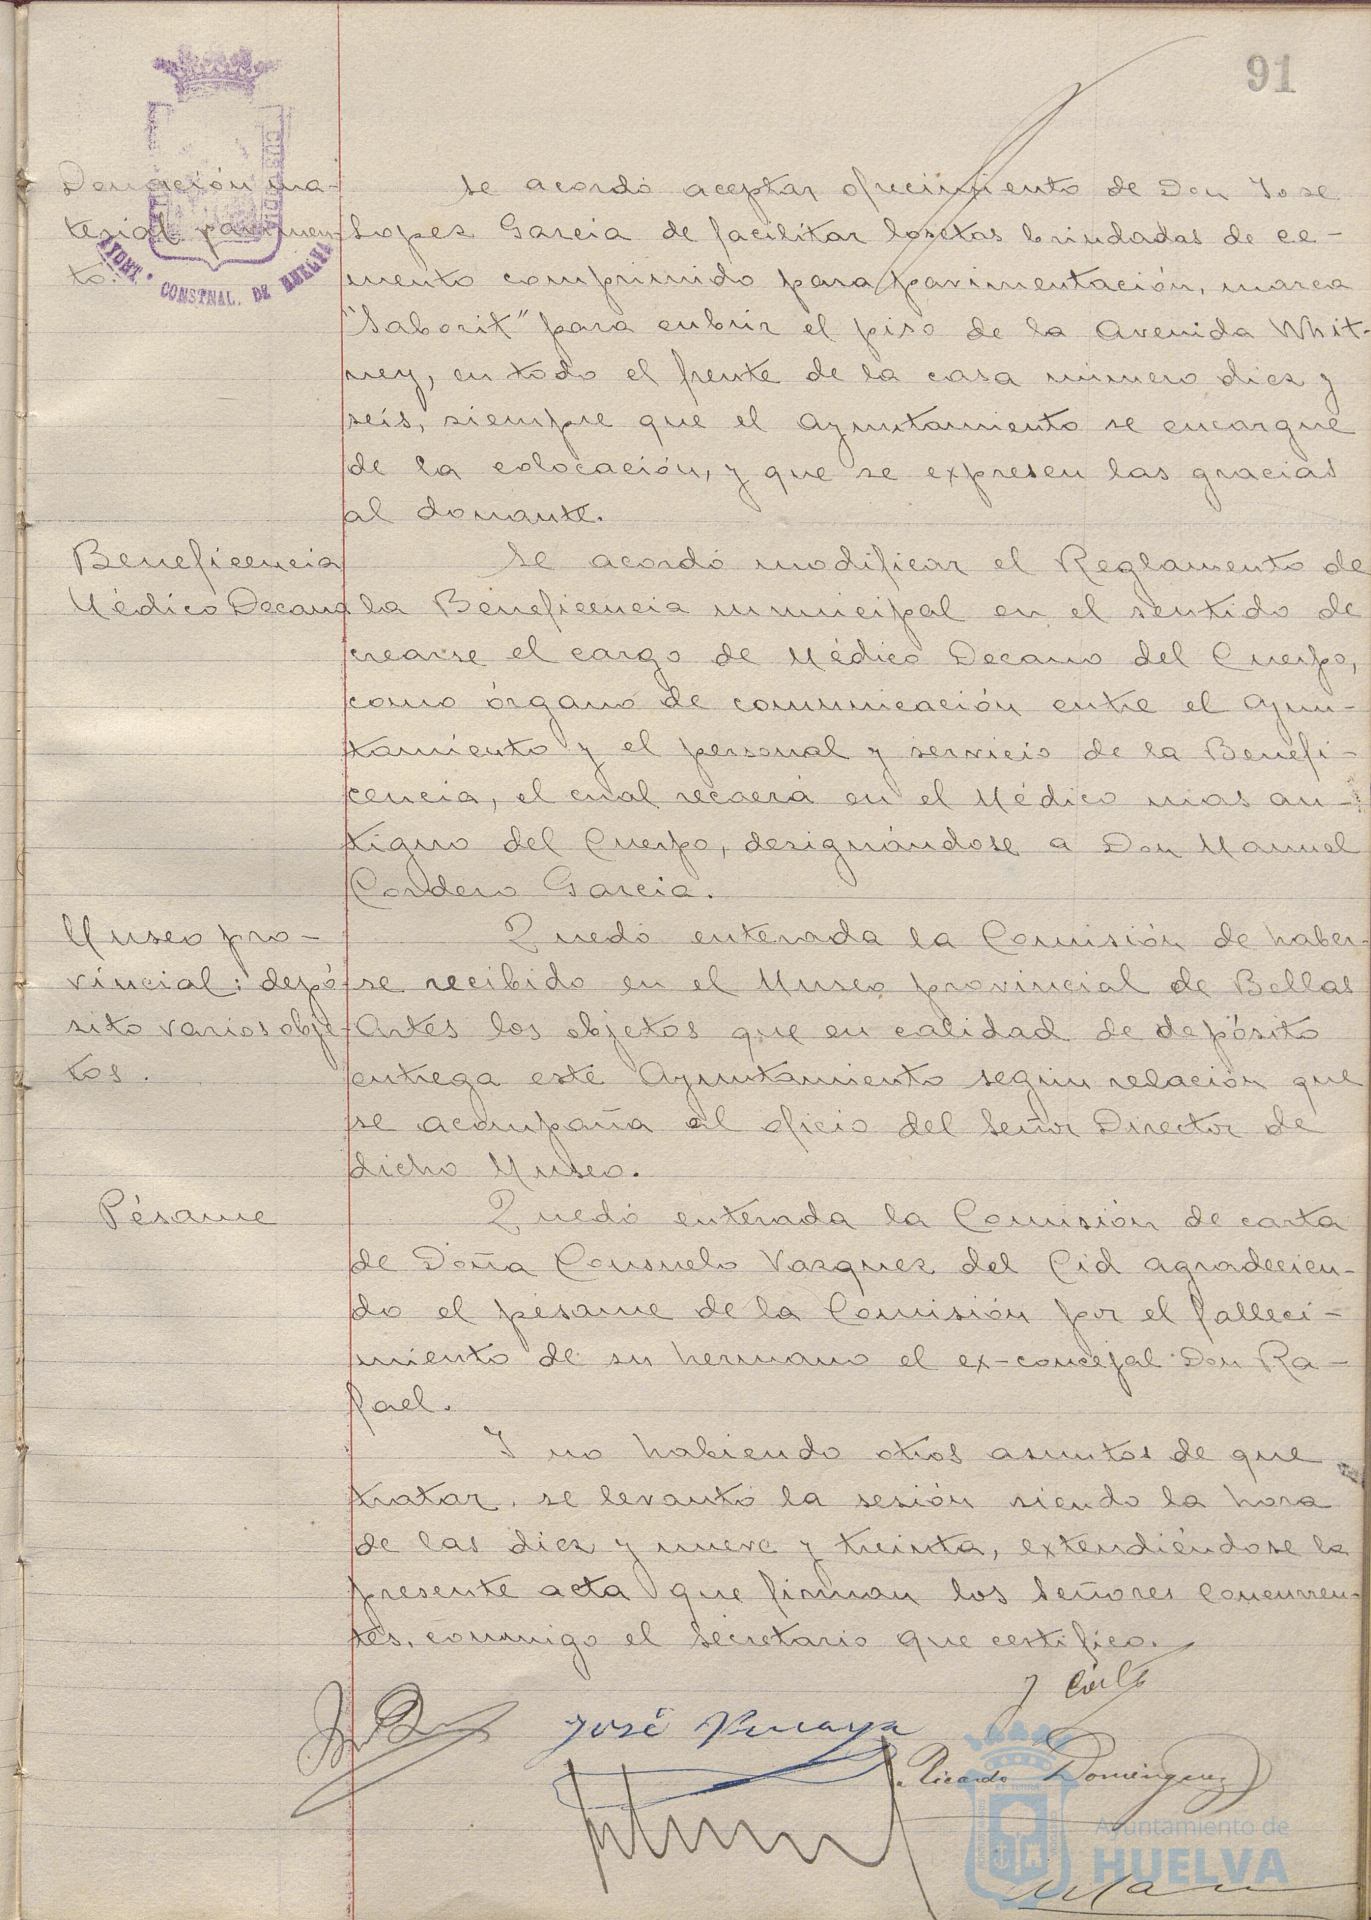 91
Donación ma-
terial pavimen-
to.
AYUNT. CONSTNAL. DE HUELVA
Se acordó aceptar ofrecimiento de Don José
Lopez Garcia de facilitar losetas brindadas de ce-
mento comprimido para pavimentación, marca
"Saborit" para cubrir el piso de la Avenida Whit-
ney, en todo el frente de la casa número diez y
seis, siempre que el Ayuntamiento se encargue
de la colocación, y que se expresen las gracias
al donante.
Beneficencia
Médico Decano
Se acordó modificar el Reglamento de
la Beneficencia municipal en el sentido de
crearse el cargo de Médico Decano del Cuerpo,
como órgano de comunicación entre el Ayun-
tamiento y el personal y servicio de la Benefi-
cencia, el cual recaerá en el Médico mas an-
tiguo del Cuerpo, designándose a Don Manuel
Cordero Garcia.
Museo pro-
vincial: depó-
sito varios obje-
tos.
Quedó enterada la Comisión de haber-
se recibido en el Museo provincial de Bellas
Artes los objetos que en calidad de depósito
entrega este Ayuntamiento según relación que
se acompaña al oficio del Señor Director de
dicho Museo.
Pésame
Quedó enterada la Comisión de carta
de Doña Consuelo Vazquez del Cid agradecien-
do el pésame de la Comisión por el falleci-
miento de su hermano el ex-concejal Don Ra-
fael.
Y no habiendo otros asuntos de que
tratar, se levantó la sesión siendo la hora
de las diez y nueve y treinta, extendiéndose la
presente acta que firman los Señores Concurren-
tes, conmigo el Secretario que certifico.
José
Ricardo Domínguez
Ayuntamiento de
HUELVA